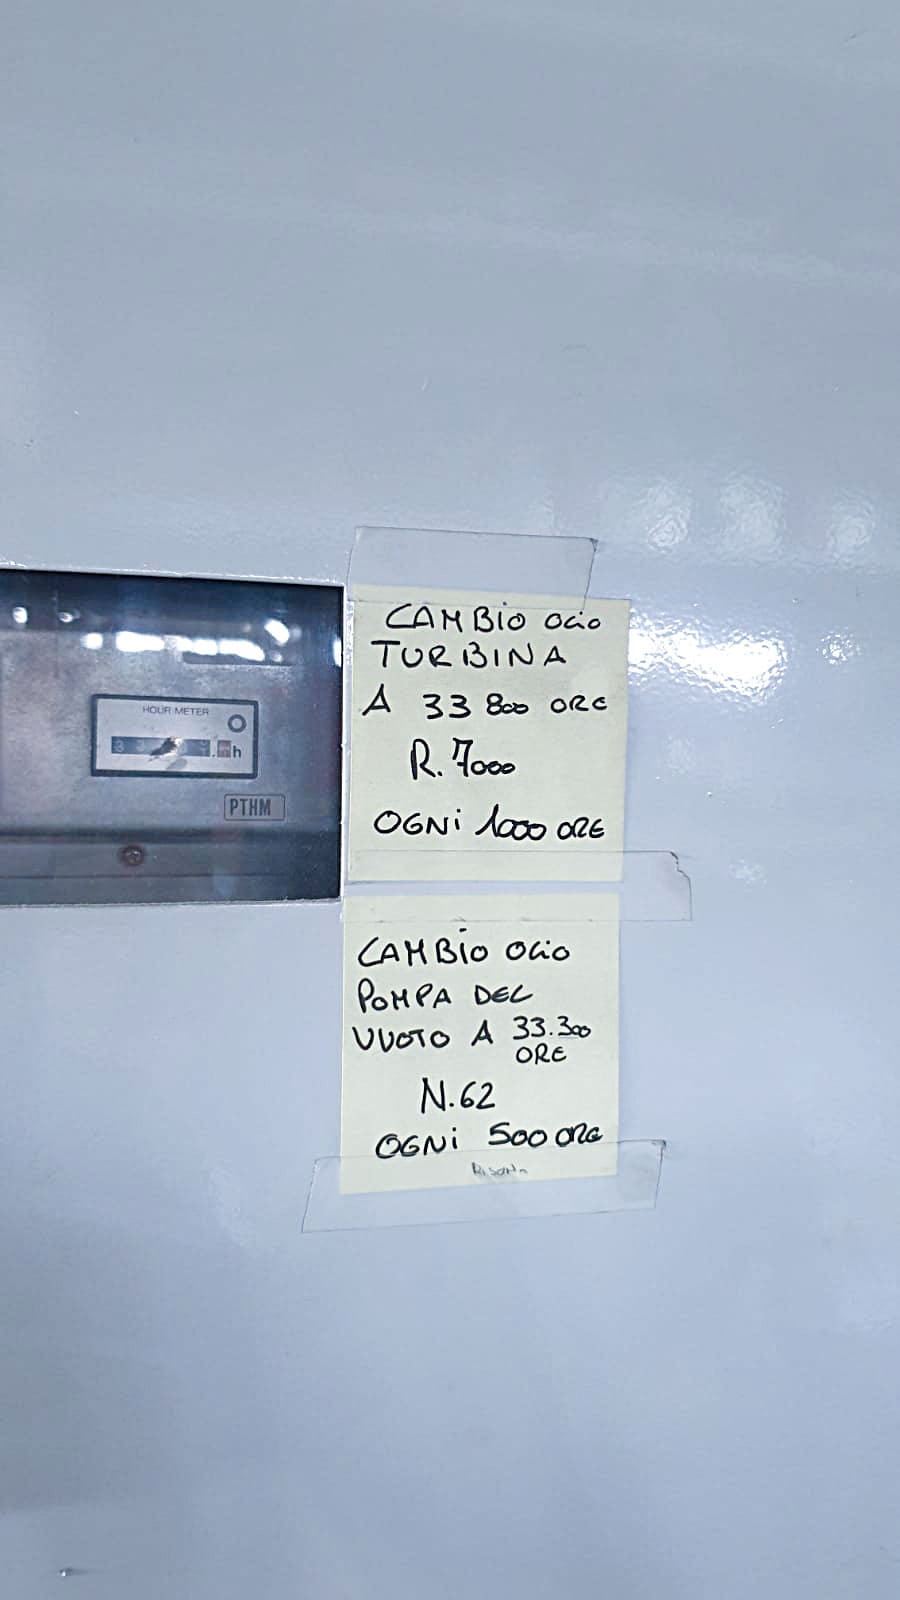 HOUR METER
h
PTHM
CAMBIO OLIO
TURBINA
A 33 800 ORE
R. 7000
OGNI 1000 ORE
CAMBIO OLIO
POMPA DEL
VUOTO A 33.300
ORE
N.62
OGNI 500 ORE